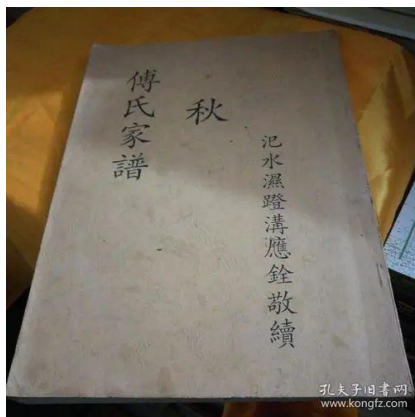 汜水濕蹬溝應銓敬續
秋
傅氏家譜
孔夫子旧书网
www.kongfz.com